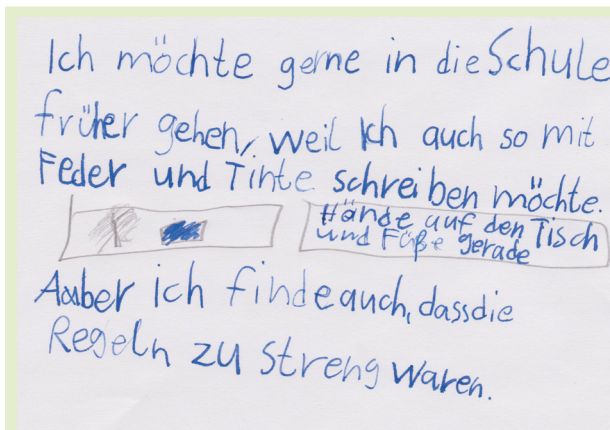 Ich möchte gerne in die Schule
früher gehen, weil Ich auch so mit
Feder und Tinte schreiben möchte.
Hände auf den Tisch
und Füße gerade
Aber ich finde auch, dass die
Regeln zu streng waren.